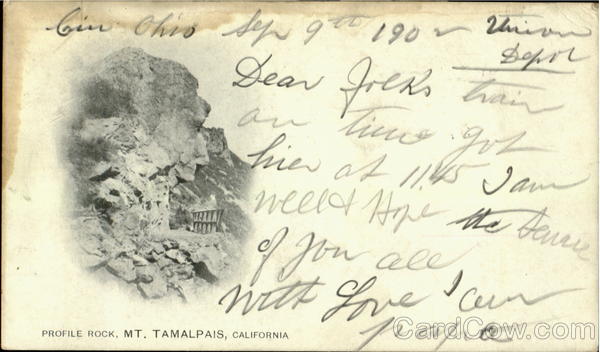 Cin Ohio Sep 9th 1902 Union
Depot
Dear Folks train
on time got
hier at 11.45 I am
well & Hope the Same
of you all
With Love I am
PROFILE ROCK, MT. TAMALPAIS, CALIFORNIA
CardCow.com